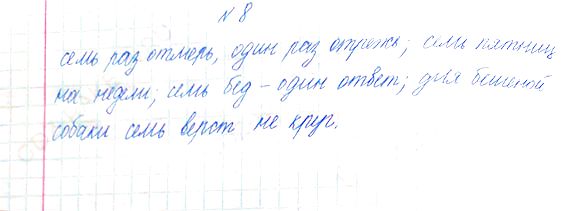 № 8
семь раз отмерь, один раз отрежь; семь пятниц
на недели; семь бед - один ответ; для бешеной
собаки семь верст не круг.